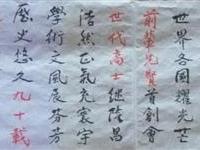 世界各國耀光芒
前輩先賢首創會
世代高士繼隆昌
浩然正氣充寰宇
學術文風展芬芳
歷史悠久九十載